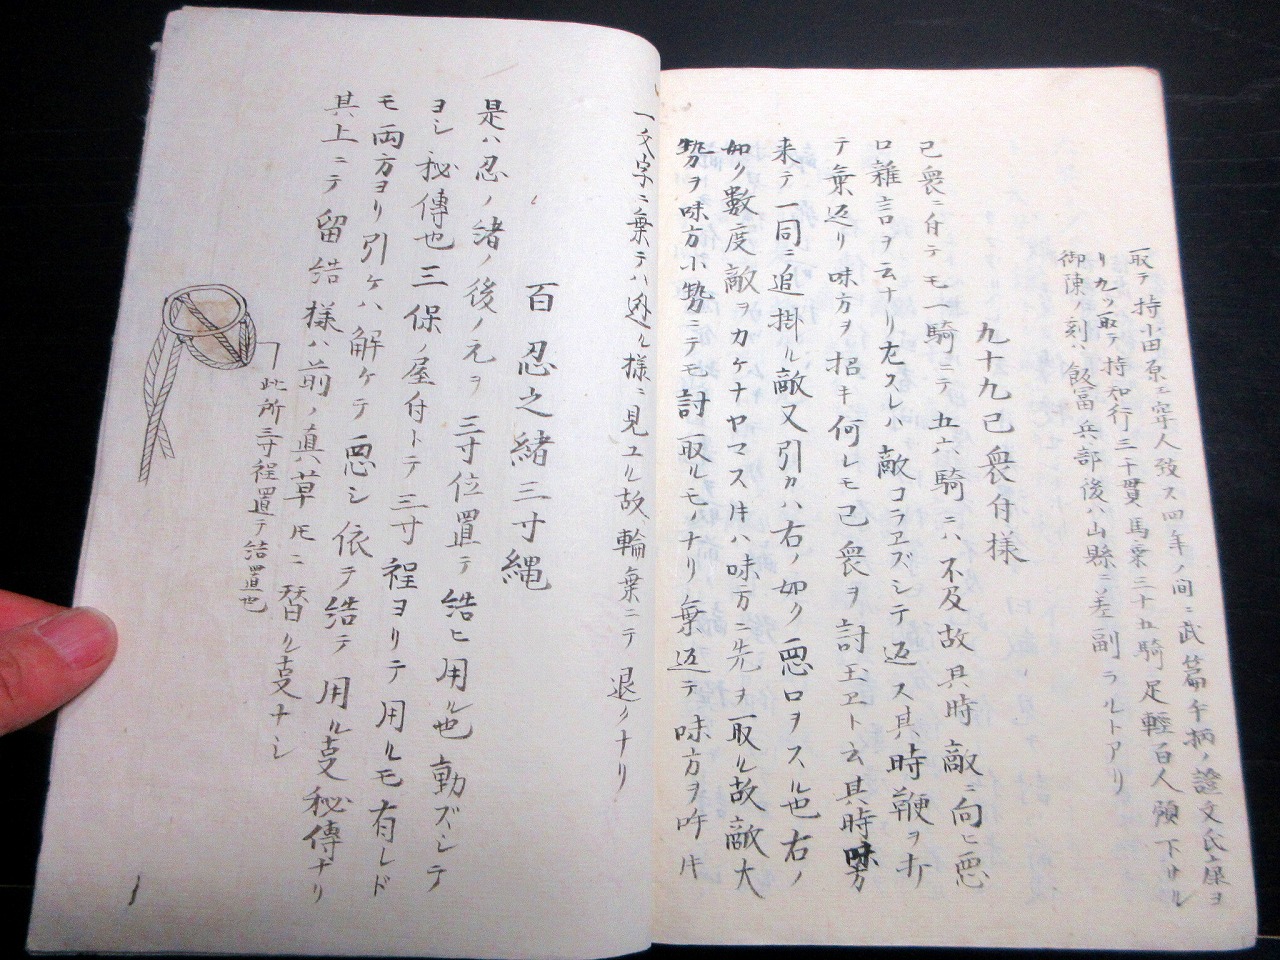 取テ持小田原エ牢人致ス四年ノ間ニ武篇手柄ノ證文氏康ヲ
リ九ツ取テ持和行三十貫馬乗三十五騎足軽百人預下サル
御陳ノ刻ハ飯冨兵部後ハ山縣ニ差副ラルトアリ
九十九己衆付様
己衆ニ付テモ一騎ニテ五六騎ニハ不及故具時敵ニ向ヒ悪
口雑言ヲ云ナリ左スレハ敵コラヱズシテ返ス其時鞭ヲ折
テ乗返リ味方ヲ招キ何レモ己衆ヲ討玉ヱト云其時味方
来テ一同ニ追掛ル敵又引カハ右ノ如ク悪口ヲスル也右ノ
如ク數度敵ヲカケナヤマス时ハ味方ニ先ヲ取ル故敵大
勢ヲ味方小勢ニテモ討取ルモノナリ乗返テ味方ヲ吟时
一文字ニ乗テハ迯ル様ニ見ユル故輪乗ニテ退クナリ
百忍之緒三寸縄
是ハ忍ノ緒ノ後ノ元ヲ三寸位置テ結ヒ用ル也動ズシテ
ヨシ秘傳也三保ノ屋付トテ三寸程ヨリテ用ルモ有レド
モ両方ヨリ引ケハ解ケテ悪シ依テ結テ用ル支秘傳ナリ
其上ニテ留結様ハ前ノ真草时ニ替ル支ナシ
此所三寸程置テ結置也